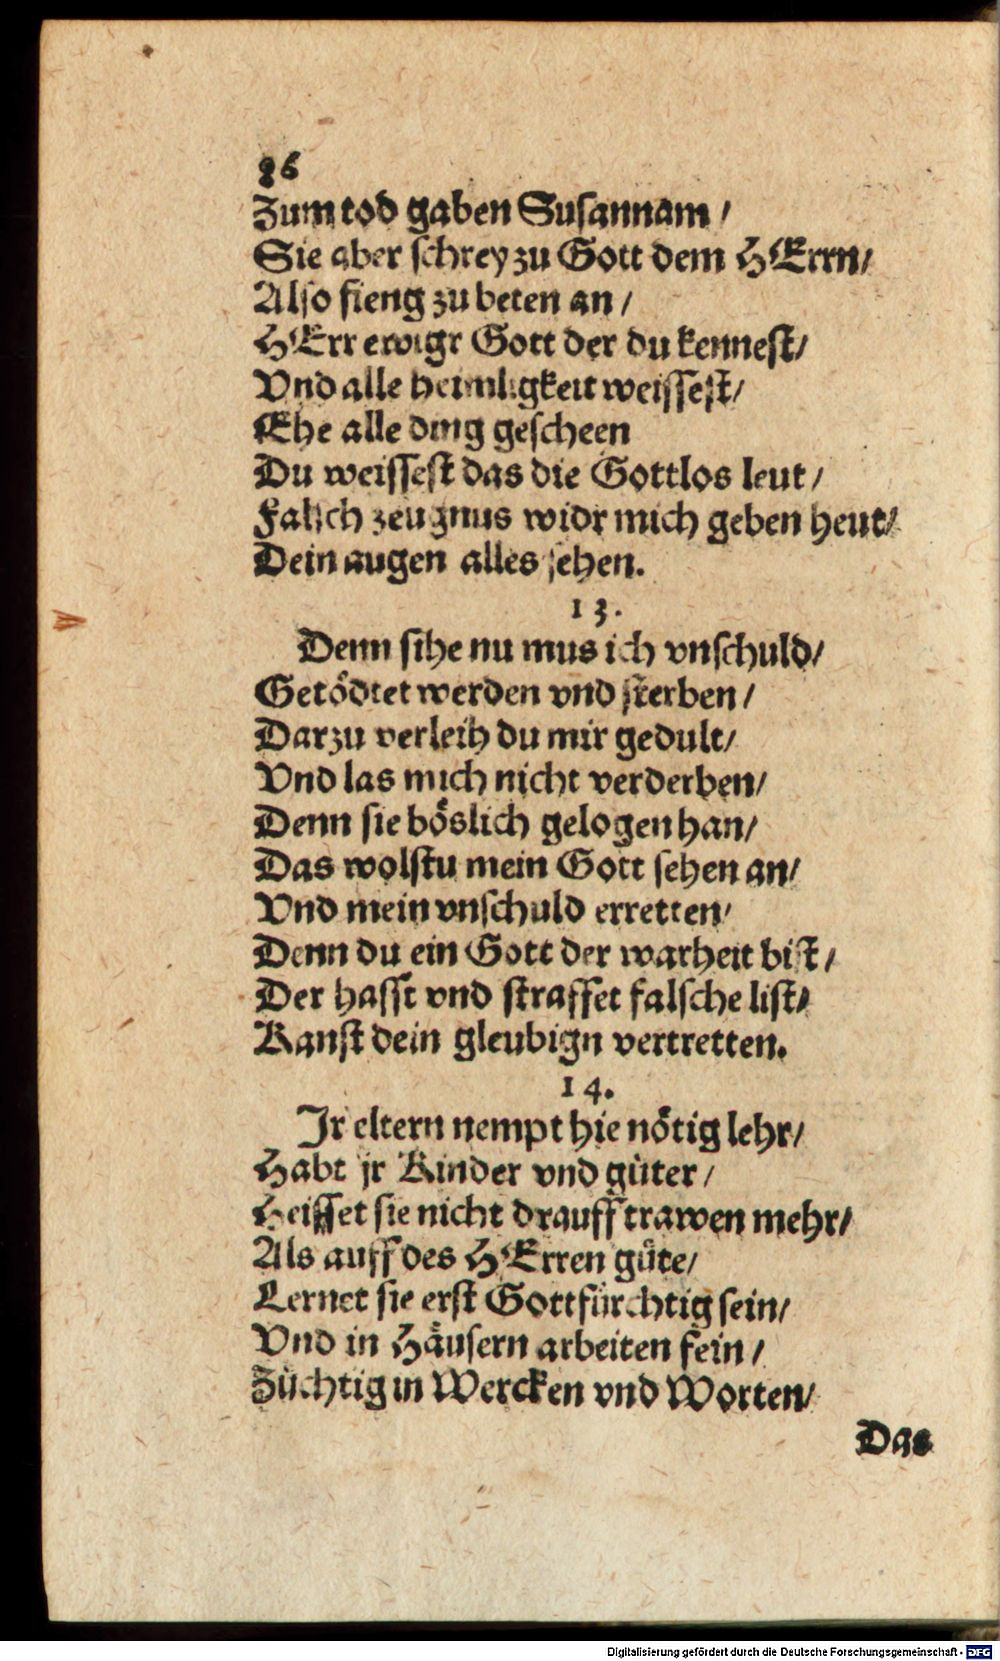 86
Zum tod gaben Susannam /
Sie aber schrey zu Gott dem HErrn/
Also fieng zu beten an /
HErr ewigr Gott der du kennest/
Vnd alle heimligkeit weissest/
Ehe alle ding gescheen
Du weissest das die Gottlos leut /
Falsch zeugnus widr mich geben heut/
Dein augen alles sehen.
13.
Denn sihe nu mus ich vnschuld/
Getödtet werden vnd sterben /
Darzu verleih du mir gedult/
Vnd las mich nicht verderben/
Denn sie böslich gelogen han/
Das wolstu mein Gott sehen an/
Vnd mein vnschuld erretten/
Denn du ein Gott der warheit bist /
Der hasst vnd straffet falsche list/
Kanst dein gleubign vertretten.
14.
Jr eltern nempt hie nötig lehr/
Habt jr Kinder vnd güter /
Heisset sie nicht drauff trawen mehr/
Als auff des HErren güte/
Lernet sie erst Gottfürchtig sein/
Vnd in Häusern arbeiten fein /
Züchtig in Wercken vnd Worten/
Das
Digitalisierung gefördert durch die Deutsche Forschungsgemeinschaft - DFG